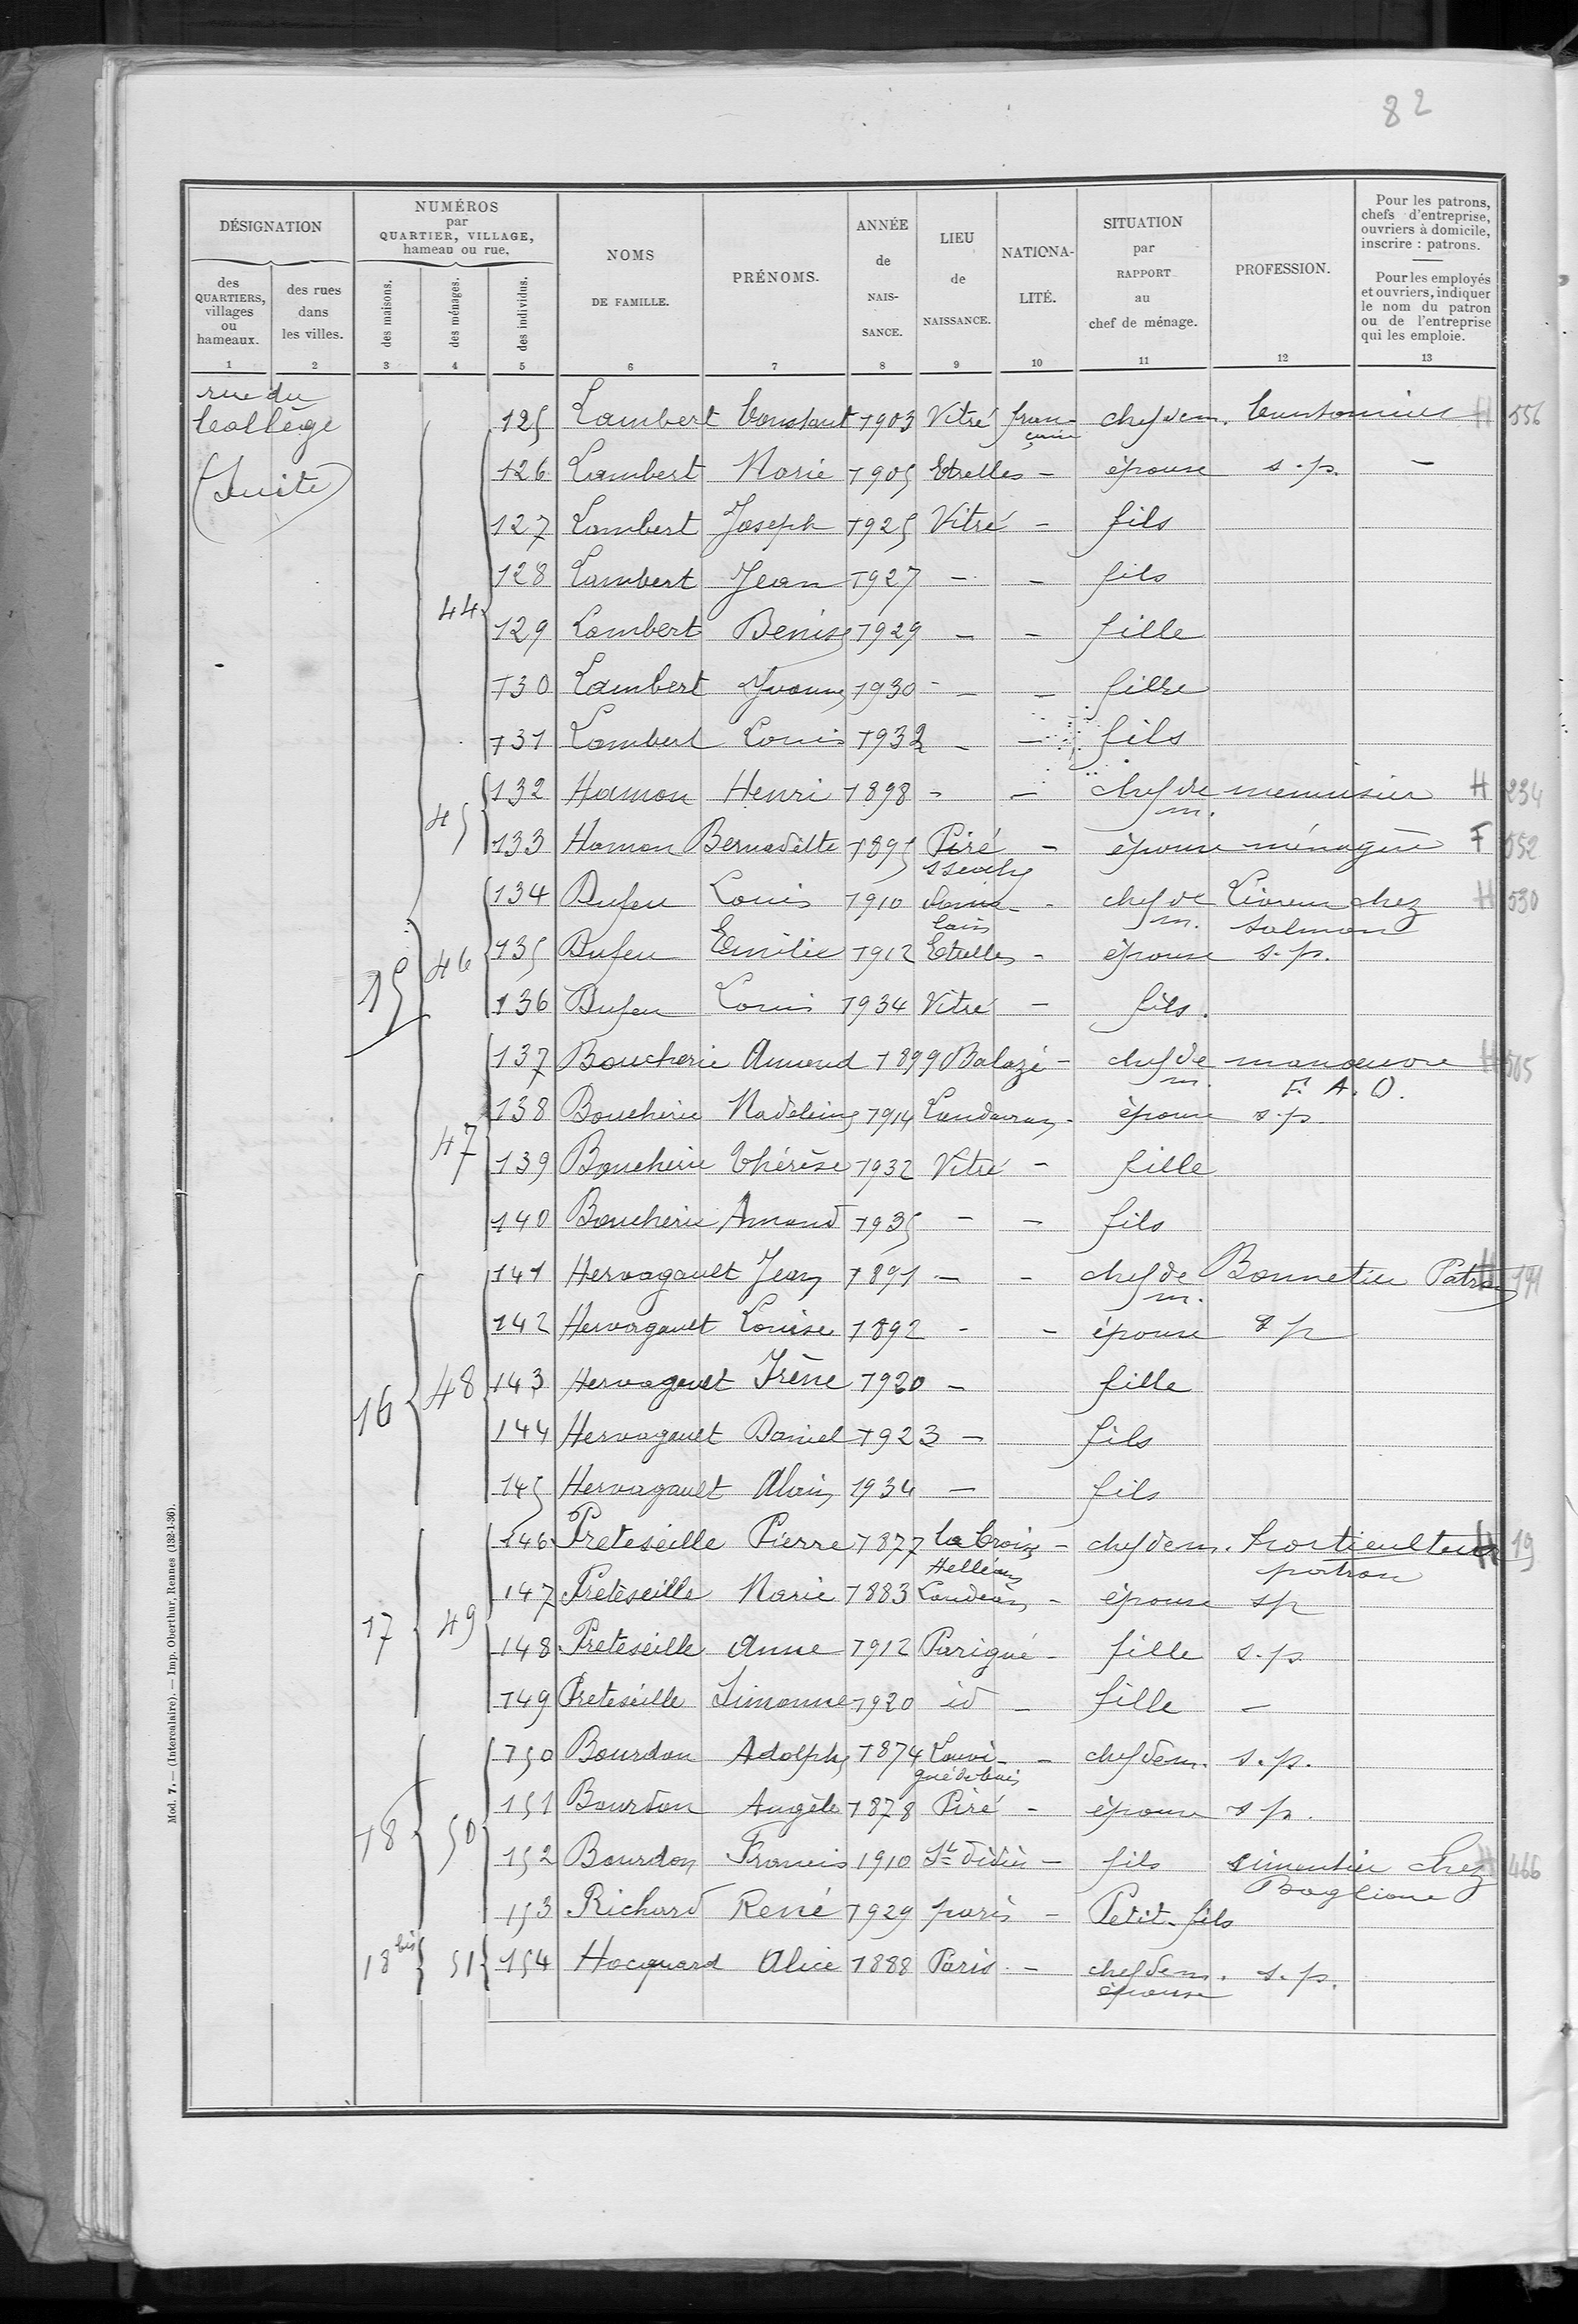 82
DÉSIGNATION
des QUARTIERS, villages ou hameaux.
des rues dans les villes.
NUMÉROS par QUARTIER, VILLAGE, hameau ou rue.
des maisons.
des ménages.
des individus.
NOMS DE FAMILLE.
PRÉNOMS.
ANNÉE de NAISSANCE.
LIEU de NAISSANCE.
NATIONALITÉ.
SITUATION par RAPPORT au chef de ménage.
PROFESSION.
Pour les patrons, chefs d'entreprise, ouvriers à domicile, inscrire : patrons.
Pour les employés et ouvriers, indiquer le nom du patron ou de l'entreprise qui les emploie.
1 2 3 4 5 6 7 8 9 10 11 12 13
rue du Collège (Suite)
44 125 Lambert Constant 1903 Vitré française chef de m. Cantonnier H 556
126 Lambert Marie 1905 Etrelles - épouse s.p. -
127 Lambert Joseph 1925 Vitré - fils
128 Lambert Jean 1927 - - fils
129 Lambert Denise 1929 - - fille
130 Lambert Yvonne 1930 - - fille
131 Lambert Louis 1932 - - fils
45 132 Hamon Henri 1898 - - chef de m. menuisier H 234
133 Hamon Bernadette 1895 Piré - épouse ménagère F 552
15 46 134 Dufeu Louis 1910 - chef de m. Livreur chez Salmon H 530
135 Dufeu Emilie 1912 Etrelles - épouse s.p.
136 Dufeu Louis 1934 Vitré - fils.
47 137 Boucherie Amand 1899 Balazé - chef de m. manoeuvre F. A. O. H 505
138 Boucherie Madeleine 1914 Landavran - épouse s.p
139 Boucherie Thérèse 1932 Vitré - fille
140 Boucherie Amand 1935 - - fils
16 48 141 Hervagault Jean 1891 - - chef de m. Bonnetier Patron H 191
142 Hervagault Louise 1892 - - épouse s p
143 Hervagault Irène 1920 - fille
144 Hervagault Daniel 1923 - fils
145 Hervagault Alain 1934 - fils
17 49 146 Preteseille Pierre 1877 La Croix Helléan - chef de m. horticulteur patron H 19
147 Preteseille Marie 1883 Landéan - épouse sp
148 Preteseille Anne 1912 Parigné - fille s.p
149 Preteseille Simonne 1920 id - fille -
18 50 150 Bourdon Adolphe 1874 Louvigné de bais - chef de m. s.p.
151 Bourdon Angèle 1878 Piré - épouse s p.
152 Bourdon Francis 1910 St Didier - fils cimentier chez Baglione H 466
153 Richard René 1929 paris - Petit-fils
18 bis 51 154 Hocquard Alice 1888 Paris - chef de m. épouse s.p.
Mod. 7. — (Intercalaire). — Imp. Oberthur, Rennes (132-1-36).